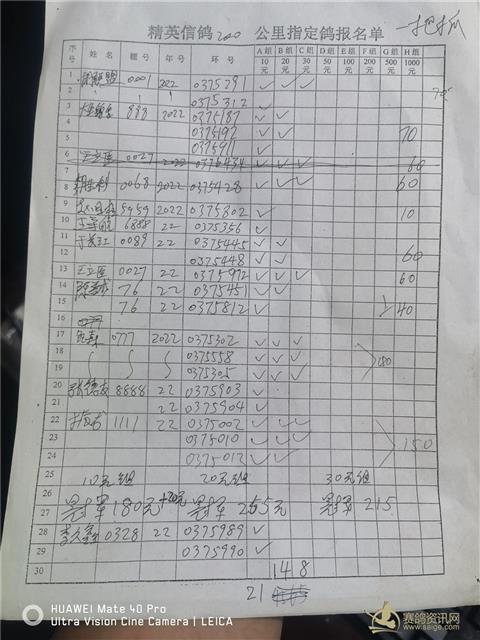 精英信鸽200公里指定鸽报名单 一把抓
序号 姓名 棚号 年号 环号 A组10元 B组20元 C组30元 D组50元 E组100元 F组200元 G组500元 H组1000元
1 0001 2022 0375291 ✓ ✓ ✓
2 0375312 ✓
3 888 2022 0375187 ✓ ✓
4 0375192 ✓ ✓
5 0375911 ✓ 70
6 王立臣 0027 2022 0376434 ✓ ✓ ✓ 60
7
8 0068 2022 0375428 ✓ ✓ ✓ 60
9 5959 2022 0375802 ✓ 10
10 6888 22 0375356 ✓
11 于长江 0089 22 0375445 ✓ ✓
12 0375448 ✓ ✓ 60
13 王立臣 0027 22 0375972 ✓ ✓ ✓ 60
14 76 22 0375451 ✓ ✓
15 76 22 0375812 ✓ 40
16
17 0777 2022 0375302 ✓ ✓ ✓
18 0375558 ✓ ✓ ✓
19 0375305 ✓ ✓ ✓ 180
20 张德友 8888 22 0375903 ✓
21 22 0375904 ✓
22 1111 22 0375002 ✓ ✓ ✓
23 0375010 ✓ ✓ ✓ 150
24 0375012 ✓ ✓
25 10元组 20元组 30元组
26
27 冠军180元+20元 冠军255元 冠军215
28 0328 22 0375989 ✓
29 0375990 ✓
30 14 8
21
HUAWEI Mate 40 Pro
Ultra Vision Cine Camera | LEICA
赛鸽资讯网
www.saige.com